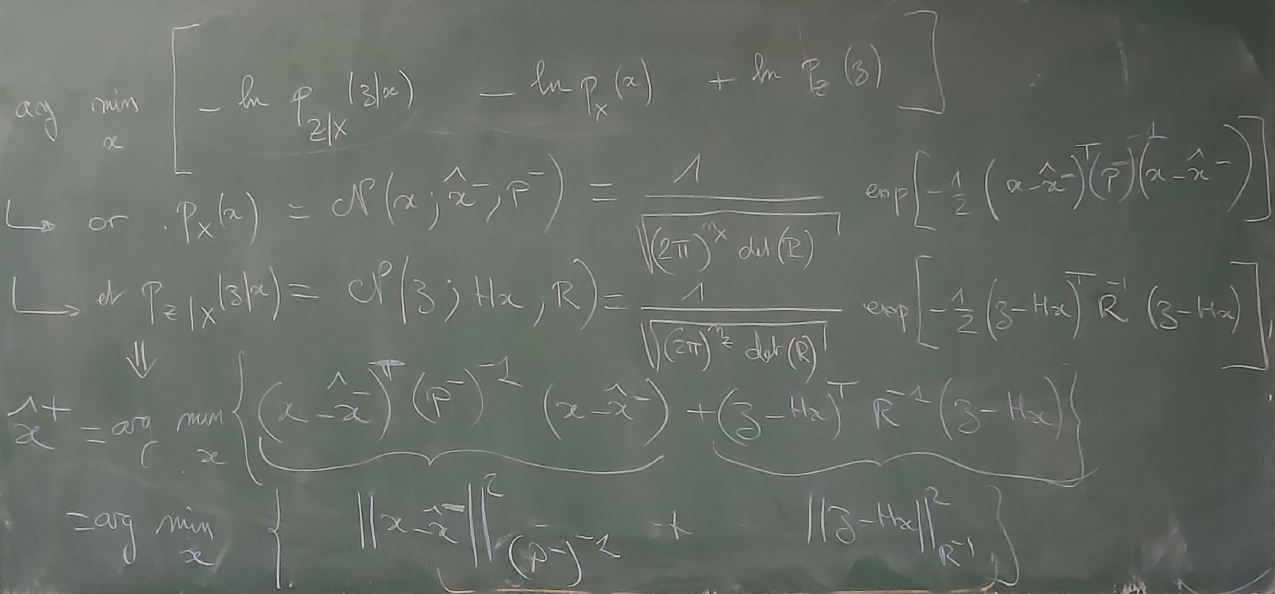 arg min_x [ - ln p_{Z|X}(z|x) - ln p_X(x) + ln p_Z(z) ]
↳ or p_X(x) = 𝒩(x; x̂⁻, P⁻) = 1/√((2π)^{n_x} det(P)) exp[-1/2 (x-x̂⁻)^T (P⁻)^{-1} (x-x̂⁻)]
↳ et p_{Z|X}(z|x) = 𝒩(z; Hx, R) = 1/√((2π)^{n_z} det(R)) exp[-1/2 (z-Hx)^T R^{-1} (z-Hx)]
⇓
x̂⁺ = arg min_x { (x-x̂⁻)^T (P⁻)^{-1} (x-x̂⁻) + (z-Hx)^T R^{-1} (z-Hx) }
= arg min_x { ||x-x̂⁻||²_{(P⁻)^{-1}} + ||z-Hx||²_{R^{-1}} }